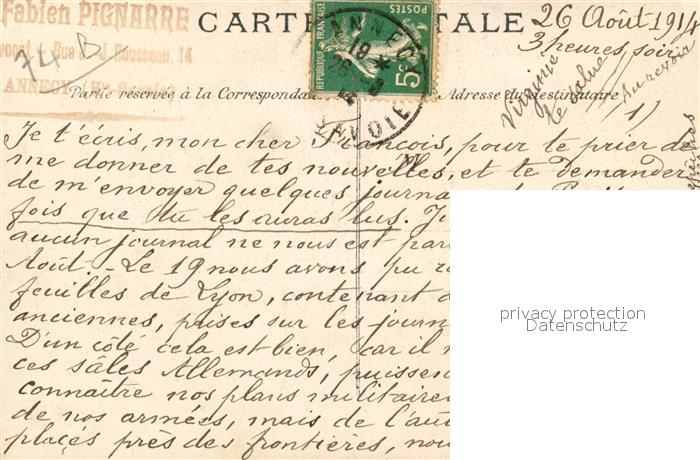 Fabien PIGNARRE
Rousseau, 14
ANNECY
74 B
CARTE POSTALE
ANNECY
19
SAVOIE
RÉPUBLIQUE FRANÇAISE
POSTES
5c
26 Août 1914
3 heures soir
Virginie
te salue
Au revoir
Partie réservée à la Correspondan
Adresse du destinataire
1)
Je t'écris, mon cher François, pour te prier de
me donner de tes nouvelles, et te demander
de m'envoyer quelques journa
fois que tu les auras lus. Je
aucun journal ne nous est par
Août. - Le 19 nous avons pu re
feuilles de Lyon, contenant d
anciennes, puises sur les journ
D'un côté cela est bien, car il n
ces sâles Allemands, puissen
connaître nos plans militaires
de nos armées, mais de l'aut
placés près des frontières, nou
privacy protection
Datenschutz